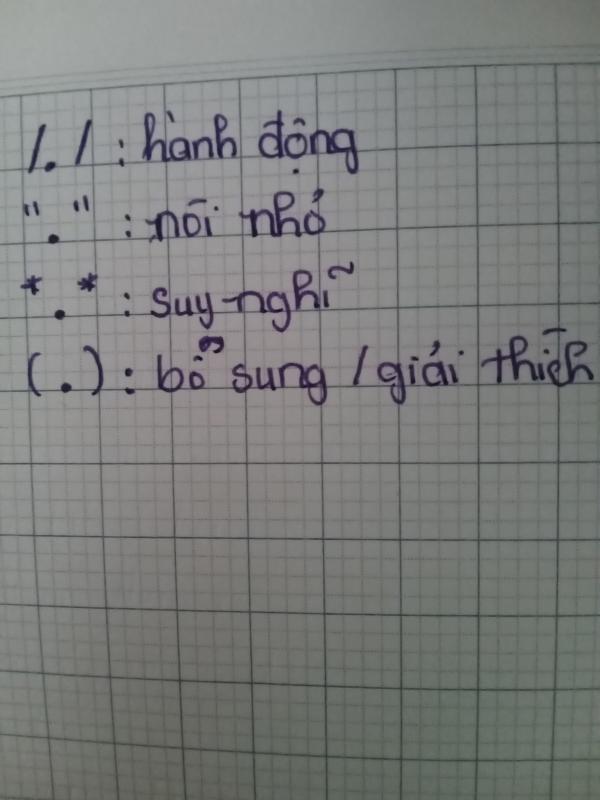 /./ : hành động
"." : nói nhỏ
*.* : suy nghĩ
(.) : bổ sung / giải thích